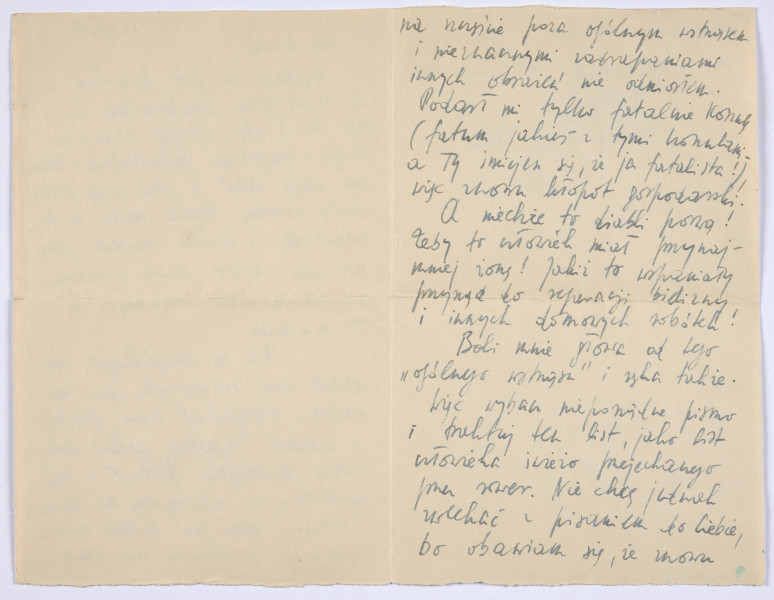 na szczęście poza ogólnym wstrząsem
i nieznacznymi zadrapaniami
innych obrażeń nie odniosłem.
Podarł mi tylko fatalnie koszulę
(fatum jakieś z tymi koszulami,
a Ty śmiejesz się, że ja fatalista!)
więc znowu kłopot gospodarski.
A niechże to diabli porwą!
Żeby to człowiek miał przynaj-
mniej żonę! Jakiż to wspaniały
przyrząd do reperacji bielizny
i innych domowych robótek!
Boli mnie głowa od tego
„ogólnego wstrząsu" i ręka także.
Więc wybacz nieporządne pismo
i traktuj ten list, jako list
człowieka świeżo przejechanego
przez rower. Nie chcę jednak
zwlekać z pisaniem do Ciebie,
bo obawiam się, że znowu